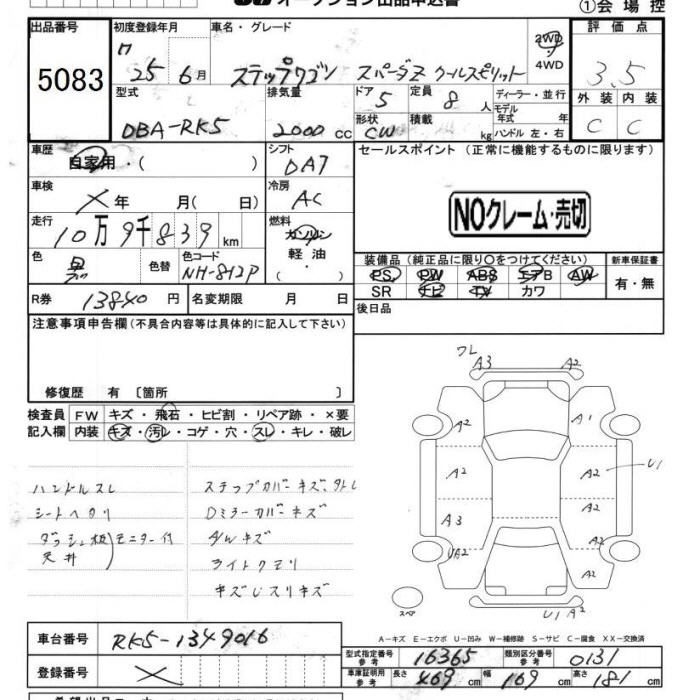 オークション出品申込書
①会場控
出品番号 初度登録年月 車名・グレード 2WD 評価点
5083 25年 6月 ステップワゴン スパーダZ クールスピリット 4WD 3.5
型式 排気量 ドア 定員 ディーラー・並行 外装 内装
DBA-RK5 2000 cc 5 8 人 モデル年式 年 C C
形状 CW 積載 kg ハンドル 左・右
車歴 自家用・( ) シフト DAT セールスポイント (正常に機能するものに限ります)
車検 × 年 月( 日) 冷房 AC
NOクレーム・売切
走行 10万9千839 km 燃料 ガソリン
軽油・( )
色 黒 色替 色コード NH-812P
装備品(純正品に限り○をつけてください) 新車保証書
PS PW ABS エアB AW 有・無
SR ナビ TV カワ
R券 13840 円 名変期限 月 日 後日品
注意事項申告欄(不具合内容等は具体的に記入して下さい)
修復歴 有 〔箇所 〕
検査員 FW キズ・飛石・ヒビ割・リペア跡・×要
記入欄 内装 キズ・汚レ・コゲ・穴・スレ・キレ・破レ
ワレ A3 A2
A2 A1
A2 A2 U1
A3 A2
UA2 A2
A2
スペア U1 A2
ハンドルスレ ステップカバーキズ、外レ
シートヘタリ Dミラーカバーキズ
ダッシュ板 モニター付 A/Wキズ
天井 ライトクモリ
キズUスリキズ
A-キズ E-エクボ U-凹み W-補修跡 S-サビ C-腐食 XX-交換済
車台番号 RK5-1349016
型式指定番号 参考 16365 類別区分番号 参考 0131
登録番号 ×
車庫証明用 参考 長さ 469 cm 幅 169 cm 高さ 181 cm